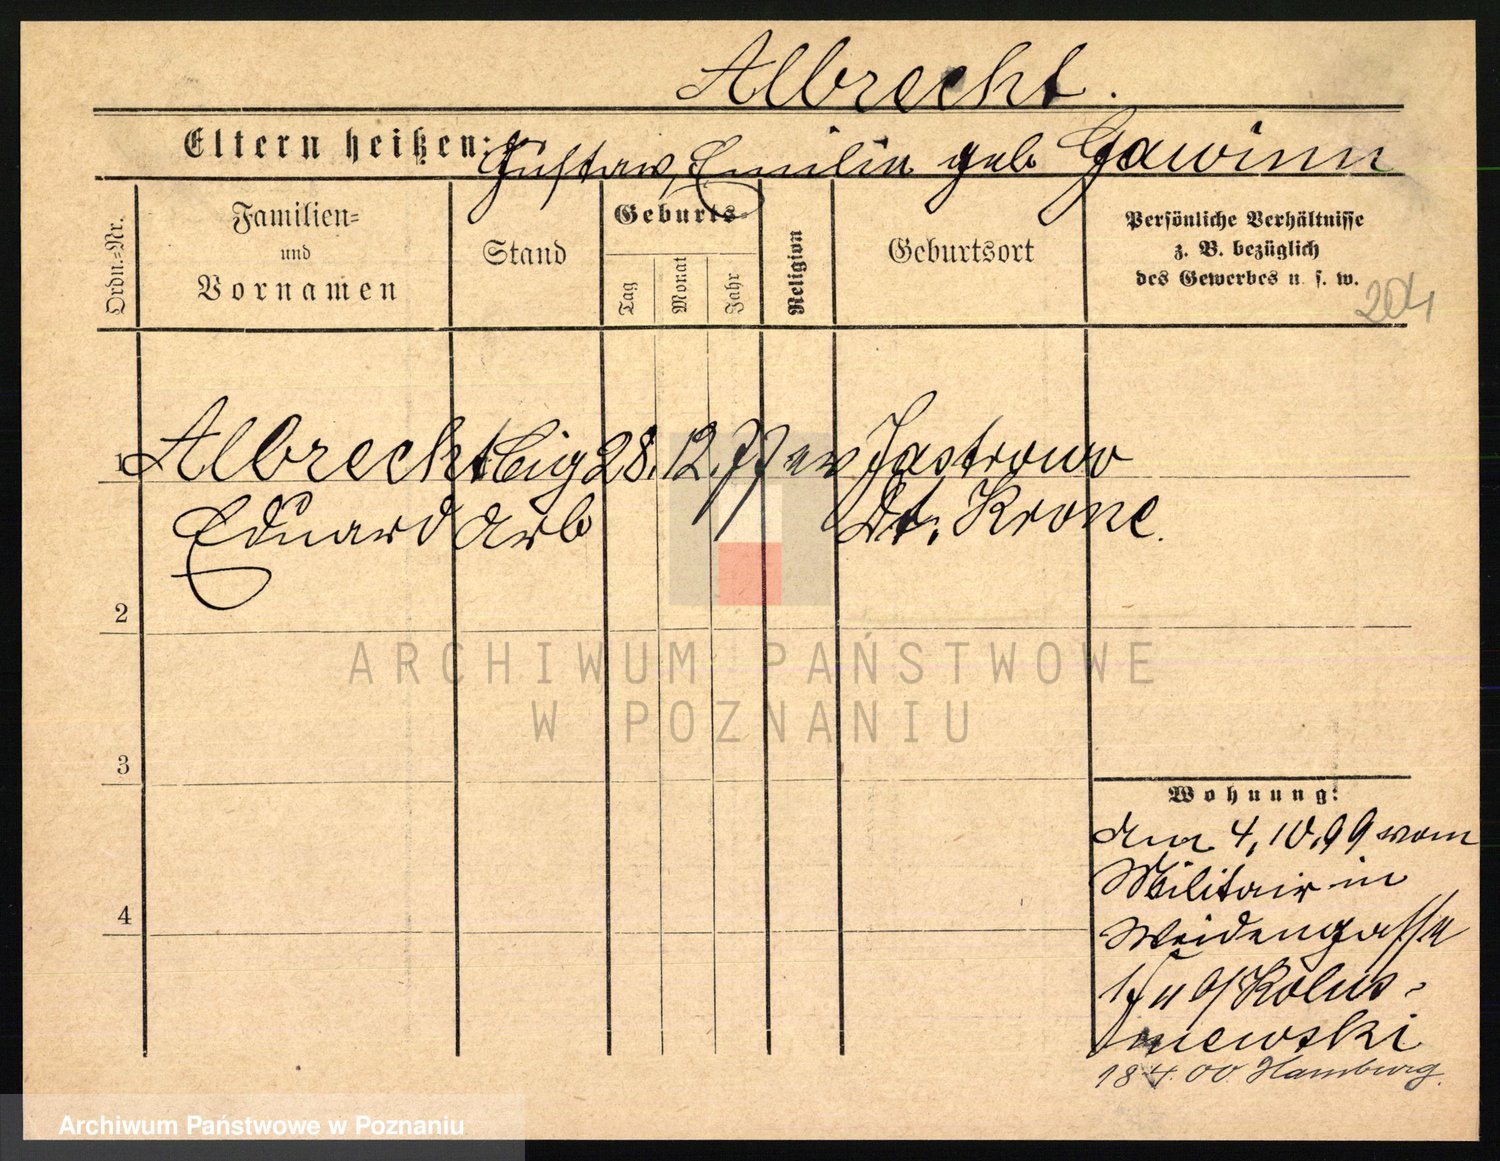 Albrecht.
Eltern heißen: Gustav, Emilie geb Gawinn
Ordn.-Nr.
Familien-
und
Vornamen
Stand
Geburts-
Tag
Monat
Jahr
Religion
Geburtsort
Persönliche Verhältnisse
z. B. bezüglich
des Gewerbes u. s. w.
204
1 Albrecht Cig 28. 12. 77 ev Jastrowo
Eduard Arb Dt. Krone.
2
3
4
Wohnung:
Am 4.10.99 vom
Militair in
Weidengasse
newski
18 4. 00. Hamburg.
ARCHIWUM PAŃSTWOWE
W POZNANIU
Archiwum Państwowe w Poznaniu